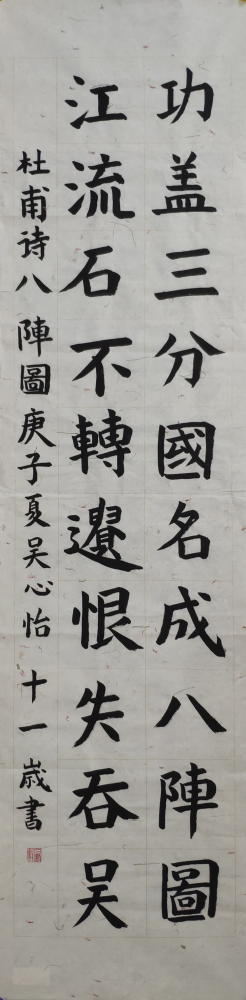 功盖三分國名成八陣圖
江流石不轉遺恨失吞吴
杜甫诗八陣圖庚子夏吴心怡十一歲書